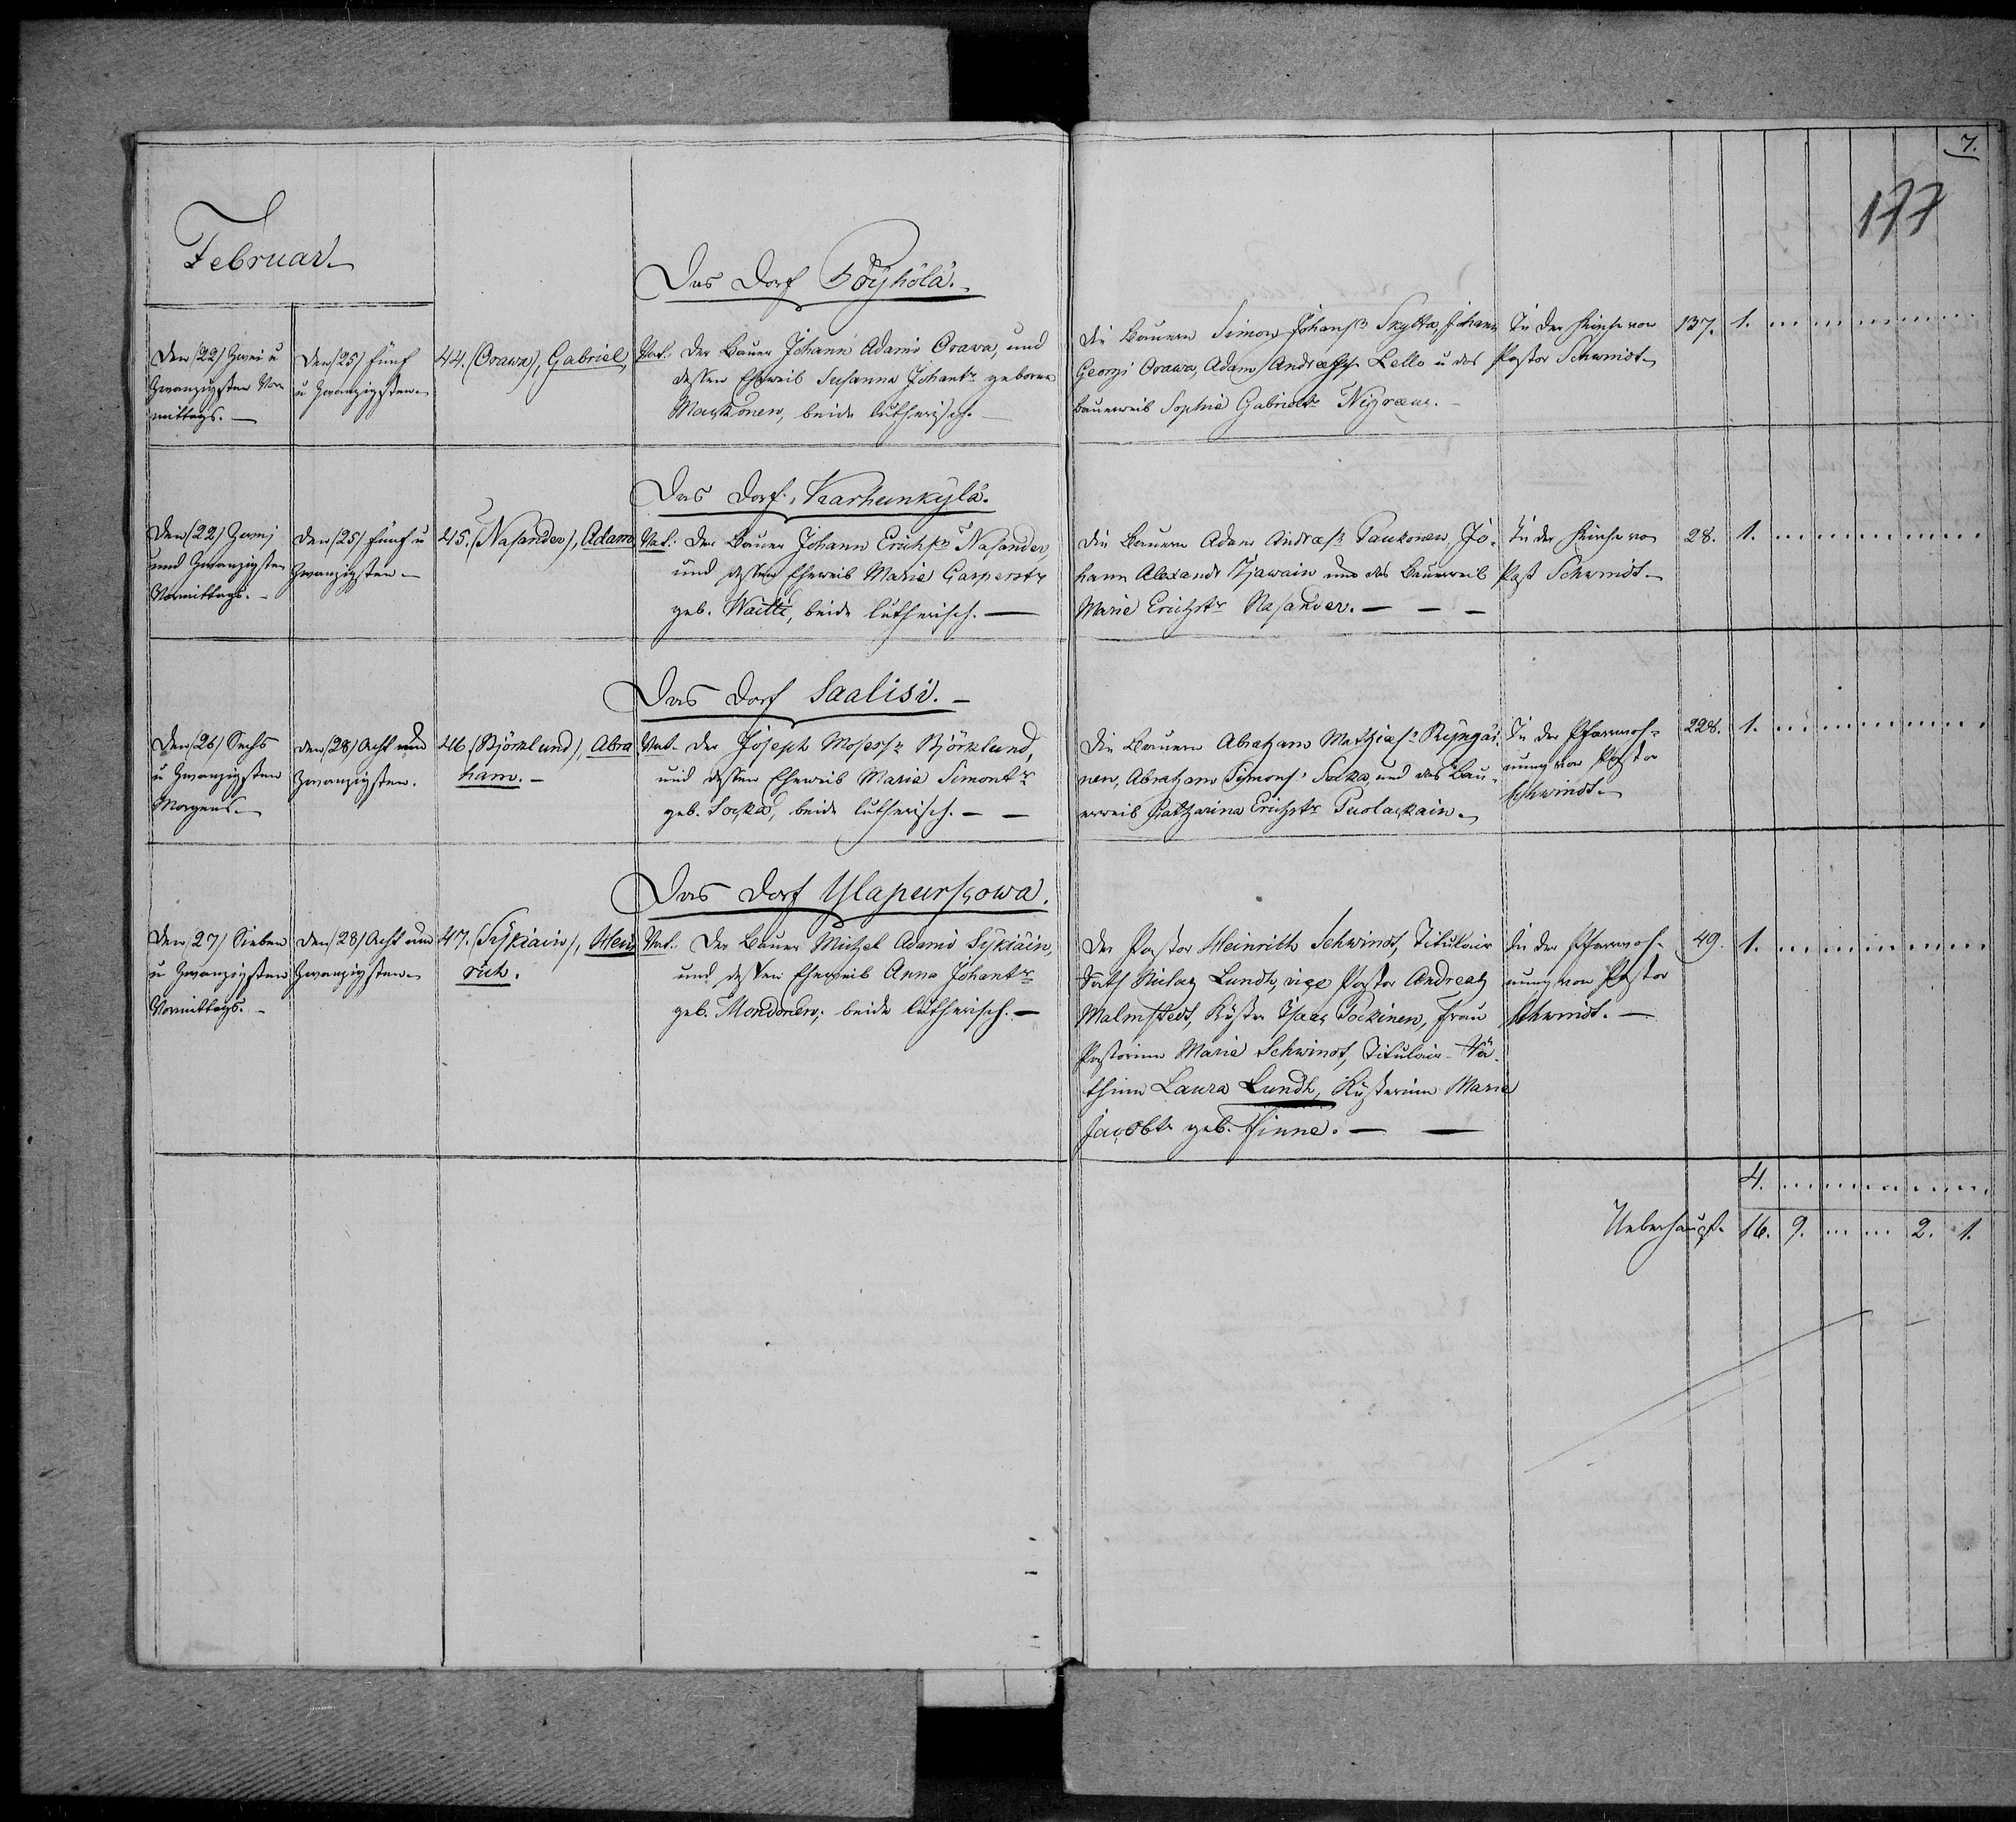 7.
177
Februar
Das Dorf Pöyhölä.
Den /22/ Zwei u
Zwanzigsten Vor
mittags. —
Den /25/ fünf
u Zwanzigsten
44. (Orawa), Gabriel,
Vat. Der Bauer Johann Adams Orava, und
dessen Eheweib Susanna Johantr geborne
beide lutherisch. —
Die Bauern Simon Johansss Skytta, Johann
Georgi Orawa, Adam Andreass Lello u das
Bauerweib Sophie Gabrieltr
In der Kirche von
Pastor Schwindt
137. 1.
Das Dorf Karhunkylä.
Den /22/ Zwei
und Zwanzigsten
Vormittags. —
Den /25/ fünf u
Zwanzigsten —
45. (Nasander), Adam
Vat. Der Bauer Johann Erichss Nasander,
und dessen Eheweib Marie Casperstr
geb. beide lutherisch. —
Die Bauern Adam Andreass Paukonen, Jo-
hann Alexandr und das Bauerweib
Marie Erichstr Nasander. — — —
In der Kirche von
Past Schwindt —
28. 1.
Das Dorf Saalisi. —
Den /26/ Sechs
u Zwanzigsten
Morgens. —
Den /28/ Acht und
Zwanzigsten.
46. (Björklund), Abra
ham. —
Vat. Der Joseph Mosess Björklund,
und dessen Eheweib Maria Simontr
geb. Socka, beide lutherisch. — —
Die Bauern Abraham Mathiass
nen, Abraham Simons Socka und das Bau-
erweib Catharina Erichstr Puolackain.
In der Pfarrwoh-
nung von Pastor
Schwindt
228. 1.
Das Dorf Ylapurskowa.
Den /27/ Sieben
u Zwanzigsten
Vormittags. —
Den /28/ Acht und
Zwanzigsten
47. (Sykiäin), Hein
rich.
Vat. Der Bauer Michel Adams Sykiäin,
und dessen Eheweib Anna Johantr
geb. Mondonen, beide lutherisch. —
Der Pastor Heinrich Schwindt, Titulair
Rath Nicolay Lundh, vice Pastor Andreas
Malmstedt, Küster Isaac Pockinen, Frau
Pastorinn Marie Schwindt, Titulair-Rä-
thinn Laura Lundh, Küsterinn Marie
Jacobtr geb. Hinna. — —
In der Pfarrwoh-
nung von Pastor
Schwindt. —
49. 1.
4.
Ueberhaupt 16. 9. 2. 1.